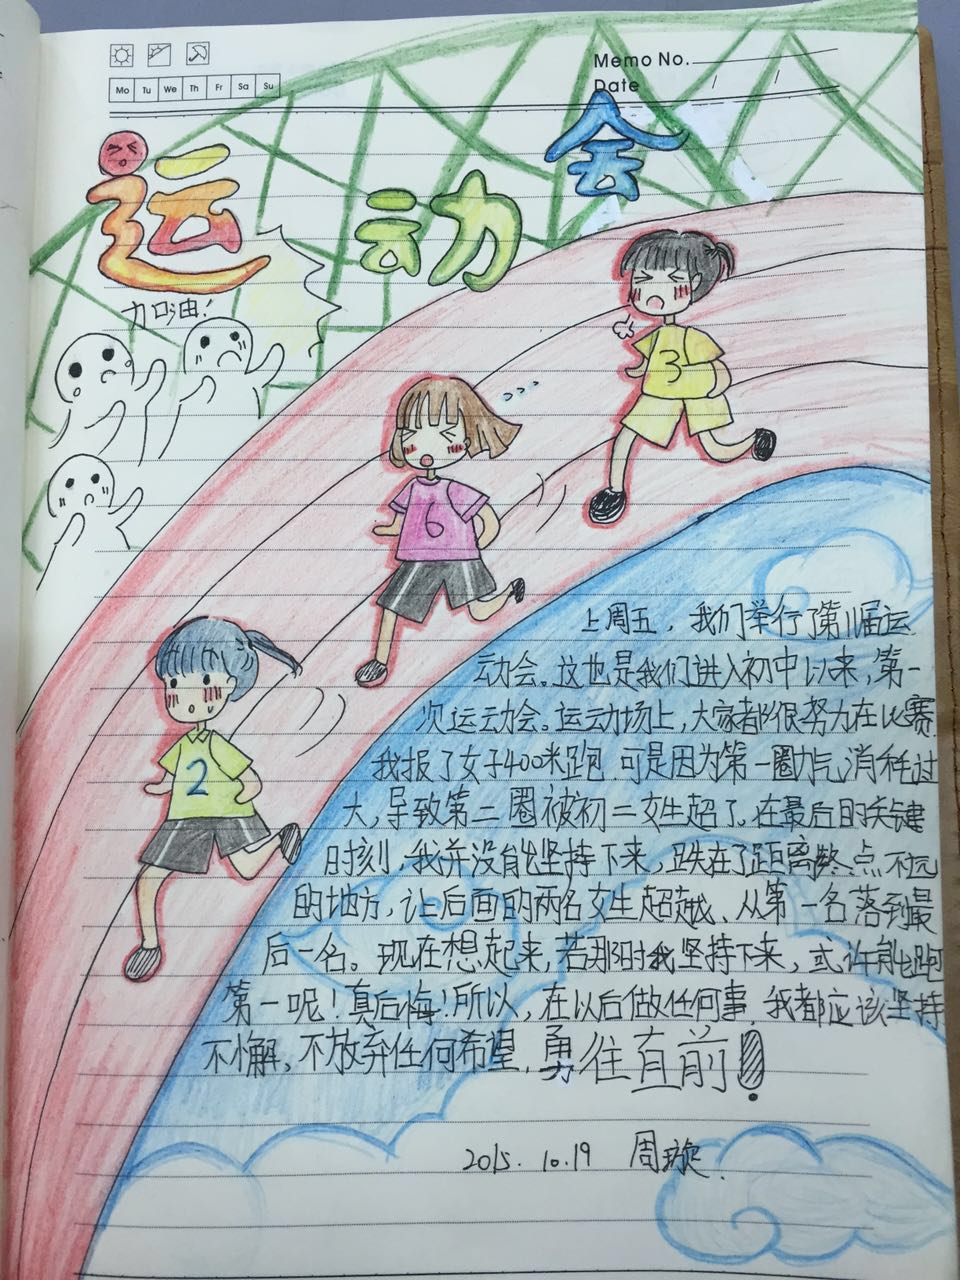 Memo No.
Date / /
Mo Tu We Th Fr Sa Su
运动会
加油!
3
6
2
上周五,我们举行了第11届运
动会。这也是我们进入初中以来,第一
次运动会。运动场上,大家都很努力在比赛.
我报了女子400米跑 可是因为第一圈力气消耗过
大,导致第二圈被初二女生超了。在最后的关键
时刻,我并没能坚持下来,跌在了距离终点不远
的地方,让后面的两名女生超越、从第一名落到最
后一名。现在想起来,若那时我坚持下来,或许能跑
第一呢!真后悔!所以,在以后做任何事,我都应该坚持
不懈,不放弃任何希望,勇往直前!
2015. 10.19 周璇